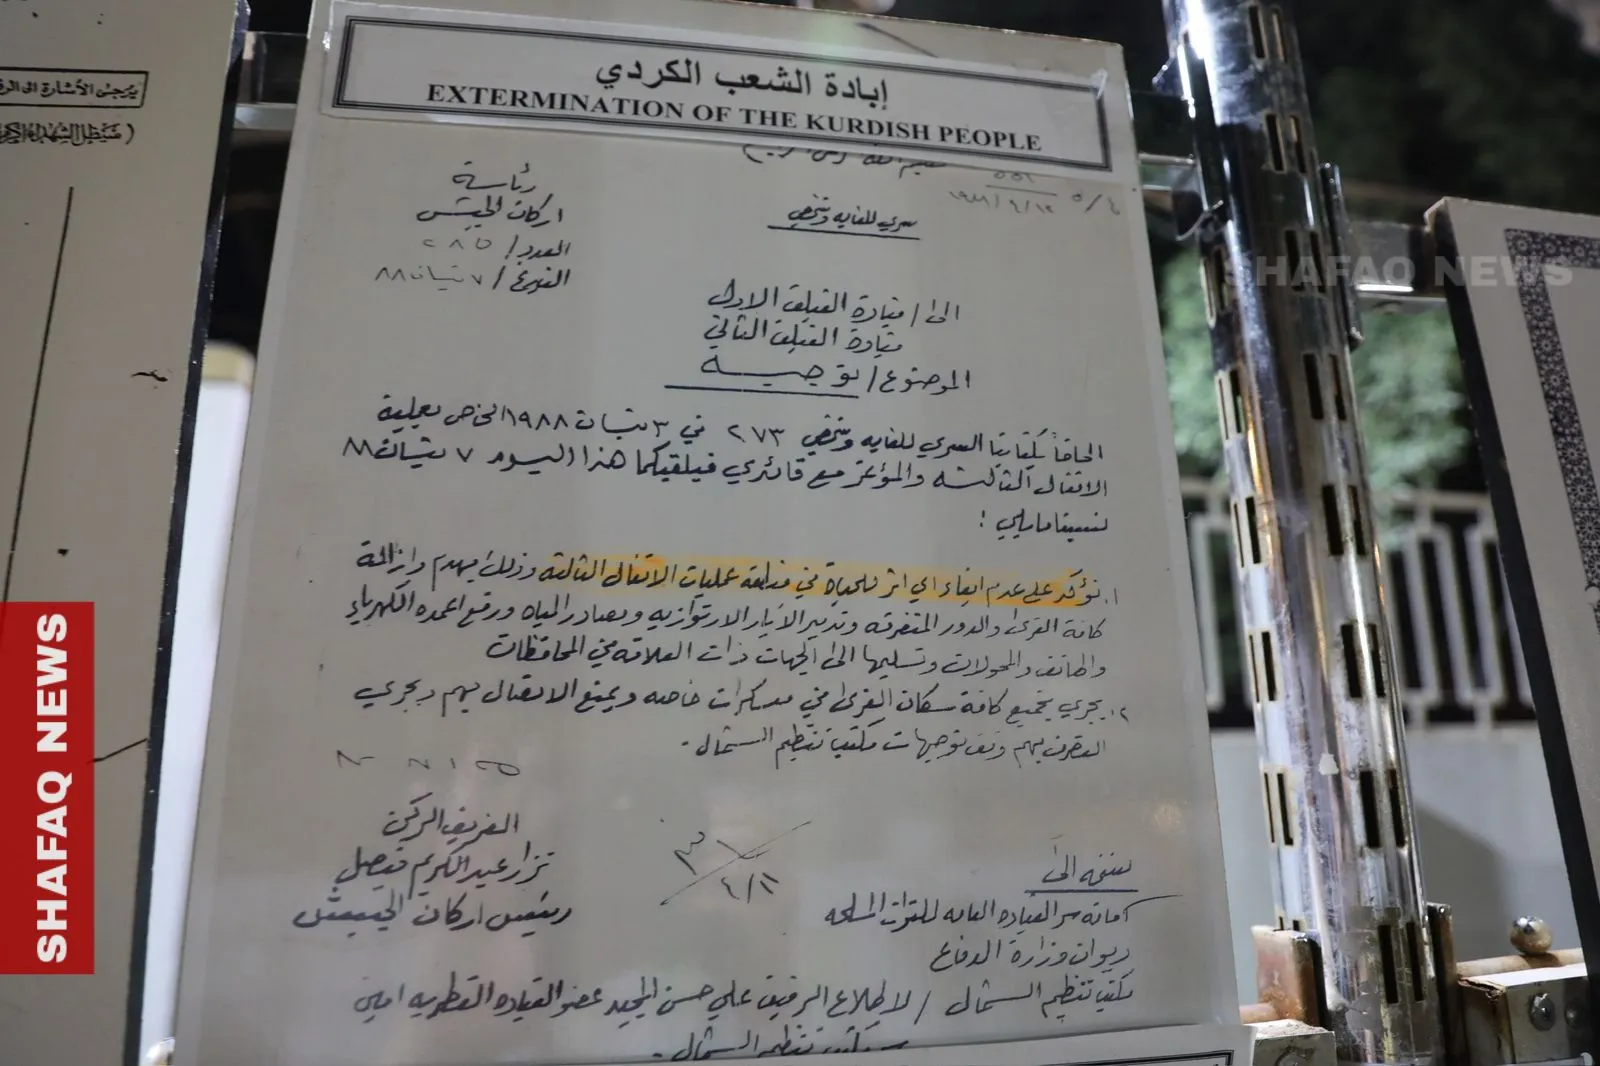 إبادة الشعب الكردي
EXTERMINATION OF THE KURDISH PEOPLE
رئاسة
اركان الجيش
العدد / ٢٨٥
التاريخ / ٧ نيسان ٨٨
سري للغاية وشخصي
الى / قيادة الفيلق الاول
قيادة الفيلق الثاني
الموضوع / توجيه
الحاقاً بكتابنا السري للغاية وشخصي ٢٧٣ في ٣ نيسان ١٩٨٨ الخاص بعملية
الانفال الثالثة والمؤتمر مع قائدي فيلقيكما هذا اليوم ٧ نيسان ٨٨
نسبنا مايلي :
١. نؤكد على عدم ابقاء اي اثر للحياة في منطقة عمليات الانفال الثالثة وذلك بهدم وازالة
كافة القرى والدور المتفرقة وتدمير الآبار الارتوازية ومصادر المياه ورفع اعمدة الكهرباء
والهاتف والمحولات وتسليمها الى الجهات ذات العلاقة في المحافظات
٢. يجري تجميع كافة سكان القرى في معسكرات خاصة ويمنع الاتصال بهم ويجري
التصرف بهم وفق توجيهات مكتب تنظيم الشمال .
الفريق الركن
نزار عبد الكريم فيصل
رئيس اركان الجيش
٤/١١
نسخه الى
امانة سر القيادة العامة للقوات المسلحة
ديوان وزارة الدفاع
مكتب تنظيم الشمال / لاطلاع الرفيق علي حسن المجيد عضو القيادة القطرية امين
مكتب تنظيم الشمال .
يرجى الأشارة الى
SHAFAQ NEWS
SHAFAQ NEWS